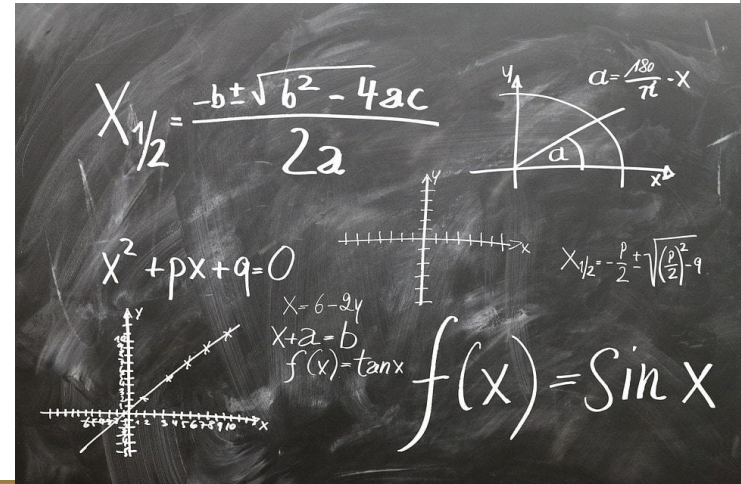 X₁/₂ = (-b ± √(b² - 4ac)) / 2a
y
a = 180/π · x
a
x
y
x
x² + px + q = 0
X₁/₂ = -p/2 ± √((p/2)² - q
x = 6 - 2y
x + a = b
f(x) = tan x
f(x) = Sin x
y
x